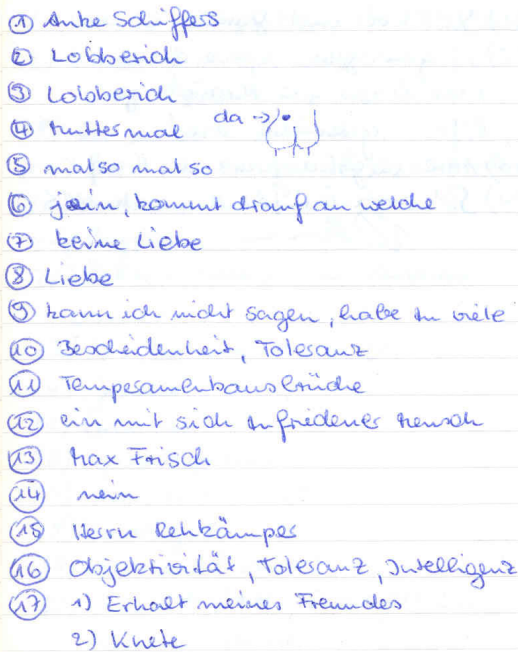 ① Anke Schiffers
② Lobberich
③ Lobberich
④ Muttermal da →
⑤ mal so mal so
⑥ jein, kommt drauf an welche
⑦ keine Liebe
⑧ Liebe
⑨ kann ich nicht sagen, habe zu viele
⑩ Bescheidenheit, Toleranz
⑪ Temperamentsausbrüche
⑫ ein mit sich zufriedener Mensch
⑬ Max Frisch
⑭ nein
⑮ Herrn Rehkämper
⑯ Objektivität, Toleranz, Intelligenz
⑰ 1) Erhalt meines Freundes
2) Knete